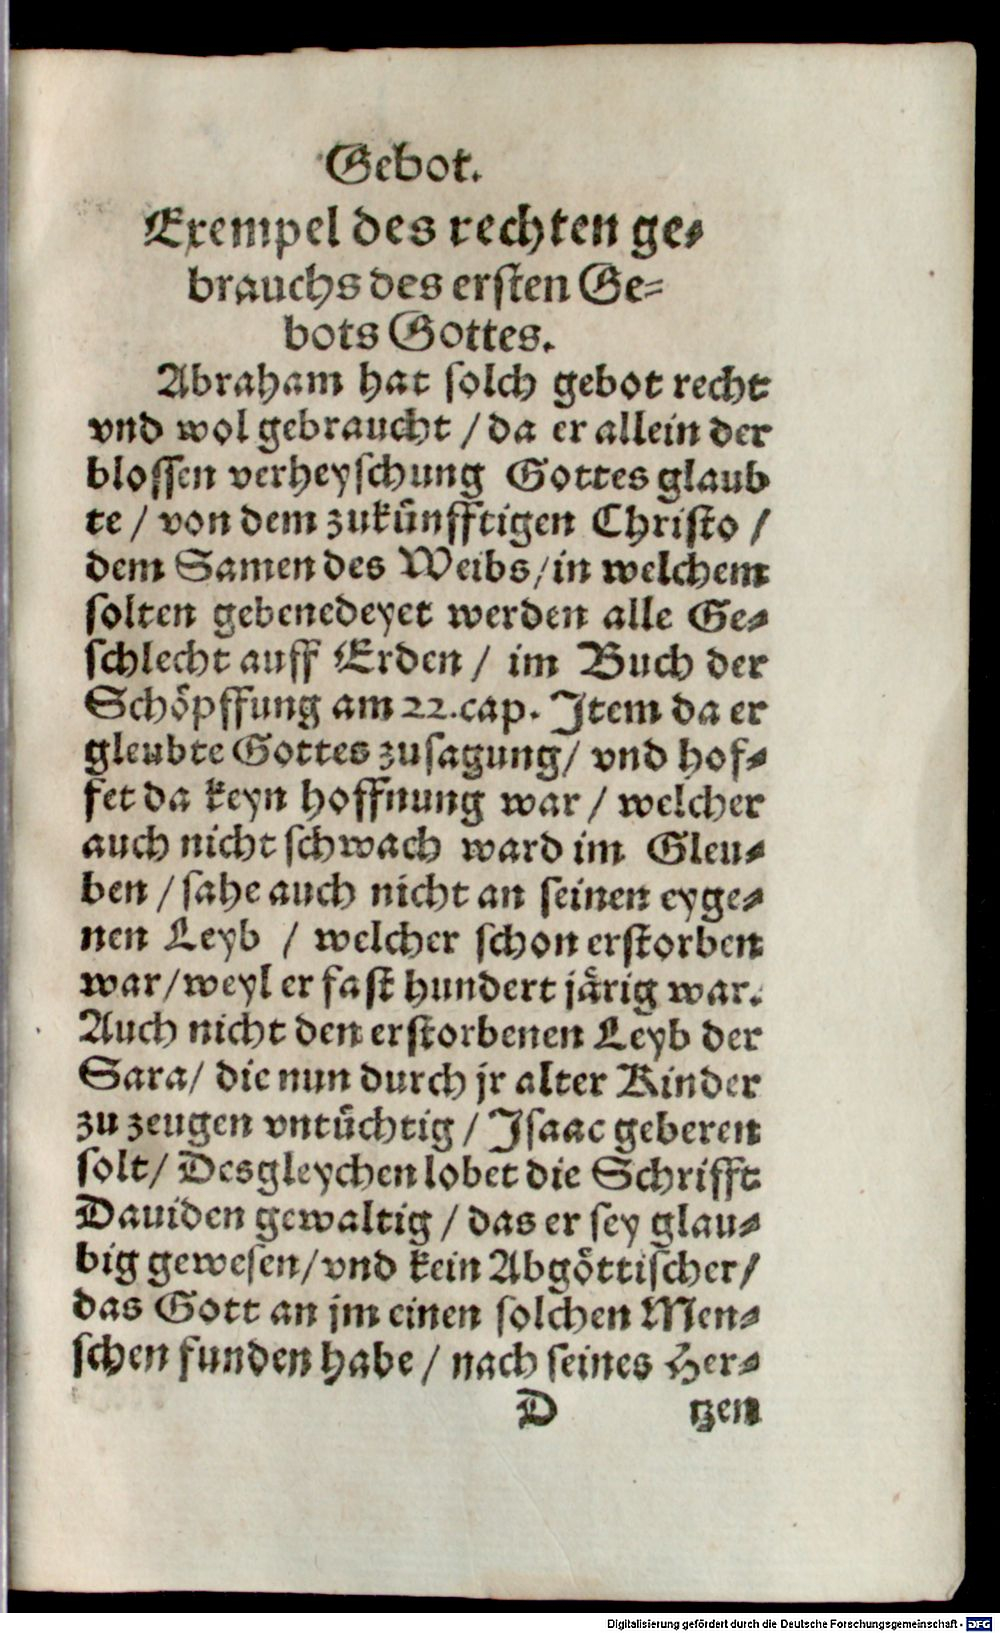 Gebot.
Exempel des rechten ge⸗
brauchs des ersten Ge⸗
bots Gottes.
Abraham hat solch gebot recht
vnd wol gebraucht / da er allein der
blossen verheyschung Gottes glaub
te / von dem zukůnfftigen Christo /
dem Samen des Weibs / in welchem
solten gebenedeyet werden alle Ge⸗
schlecht auff Erden / im Buch der
Schöpffung am 22. cap. Item da er
gleubte Gottes zusagung / vnd hof⸗
fet da keyn hoffnung war / welcher
auch nicht schwach ward im Gleu⸗
ben / sahe auch nicht an seinen eyge⸗
nen Leyb / welcher schon erstorben
war / weyl er fast hundert järig war.
Auch nicht den erstorbenen Leyb der
Sara / die nun durch jr alter Kinder
zu zeugen vntůchtig / Isaac geberen
solt / Desgleychen lobet die Schrifft
Dauiden gewaltig / das er sey glau⸗
big gewesen / vnd kein Abgöttischer /
das Gott an jm einen solchen Men⸗
schen funden habe / nach seines Her⸗
D tzen
Digitalisierung gefördert durch die Deutsche Forschungsgemeinschaft - DFG